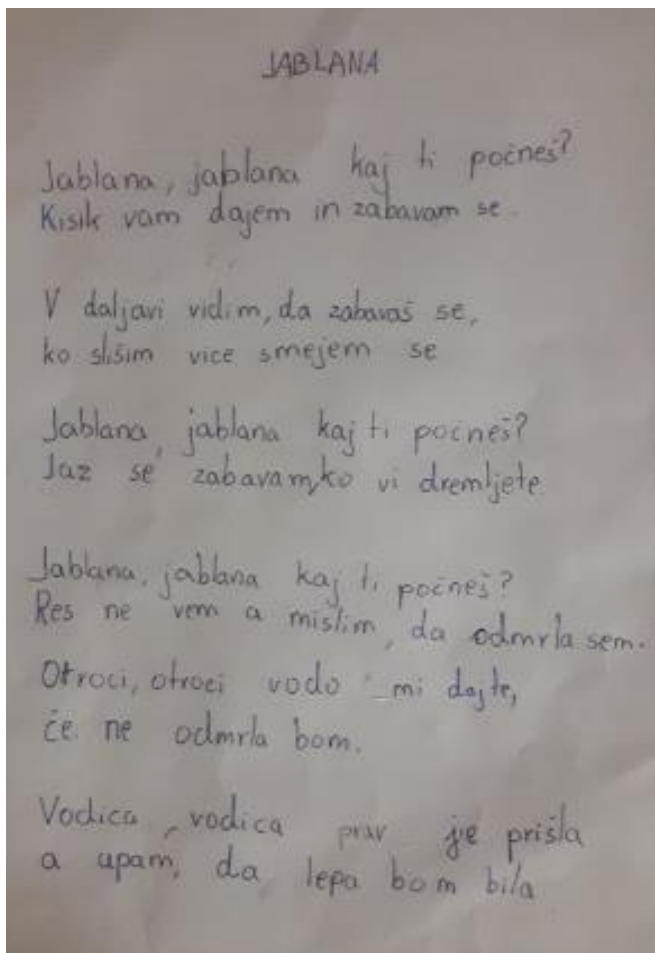 JABLANA
Jablana, jablana kaj ti počneš?
Kisik vam dajem in zabavam se.
V daljavi vidim, da zabavaš se,
ko slišim vice smejem se
Jablana, jablana kaj ti počneš?
Jaz se zabavam, ko vi dremljete
Jablana, jablana kaj ti počneš?
Res ne vem a mislim, da odmrla sem.
Otroci, otroci vodo mi dajte,
če ne odmrla bom.
Vodica, vodica prav je prišla
a upam, da lepa bom bila